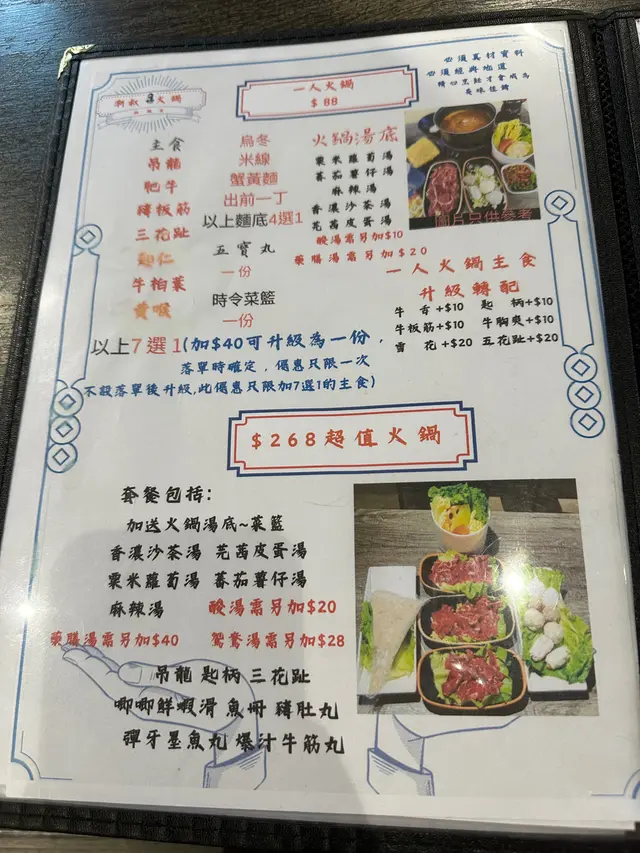 必須真材實料
必須經典地道
精心烹飪才會成為
美味佳餚
潮叔 火鍋
一人火鍋
$88
主食
吊龍
肥牛
豬板筋
三花趾
匙仁
牛柏葉
黃喉
烏冬
米線
蟹黃麵
出前一丁
以上麵底4選1
五寶丸
一份
時令菜籃
一份
火鍋湯底
粟米蘿蔔湯
蕃茄薯仔湯
麻辣湯
香濃沙茶湯
芫茜皮蛋湯
酸湯需另加$10
藥膳湯需另加$20
圖片只供參考
一人火鍋主食
升級轉配
牛 舌+$10 匙 柄+$10
牛板筋+$10 牛胸爽+$10
雪 花+$20 五花趾+$20
以上7選1(加$40可升級為一份，
落單時確定，優惠只限一次
不設落單後升級,此優惠只限加7選1的主食)
$268超值火鍋
套餐包括：
加送火鍋湯底~菜籃
香濃沙茶湯 芫茜皮蛋湯
粟米蘿蔔湯 蕃茄薯仔湯
麻辣湯 酸湯需另加$20
藥膳湯需另加$40 鴛鴦湯需另加$28
吊龍 匙柄 三花趾
唧唧鮮蝦滑 魚冊 豬肚丸
彈牙墨魚丸 爆汁牛筋丸